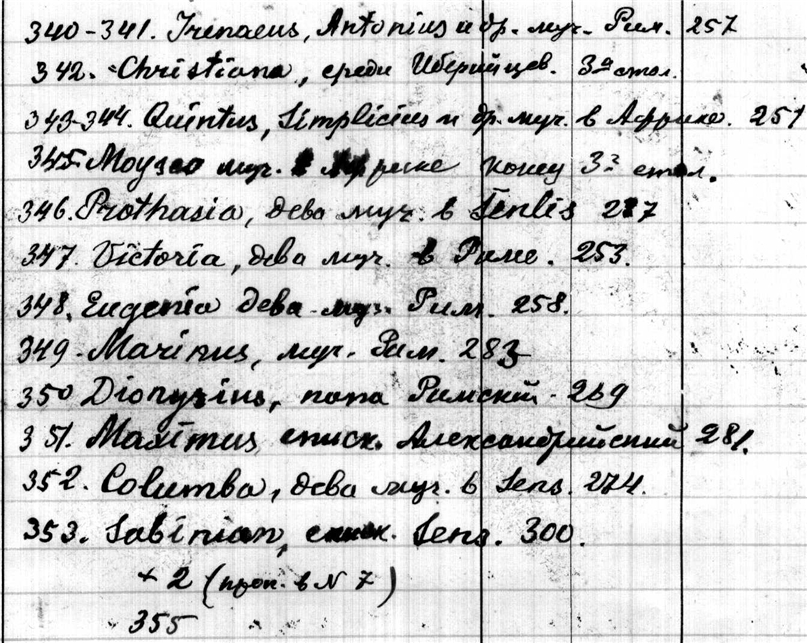 340-341. Irenaeus, Antonius и др. муч. Рим. 257
342. Christiana, среди Иберийцев. 3го стол.
343-344. Quintus, Simplicius и др. муч. в Африке. 251
345. муч. конец 3го стол.
346. Prothasia, дева муч. в Senlis 287
347. Victoria, дева муч. в Риме. 253.
348. Eugenia дева муч. Рим. 258.
349. Marinus, муч. Рим. 283
350 Dionysius, папа Римский. 269
351. Maximus еписк. Александрийский 281.
352. Columba, дева муч. в Sens. 274.
353. Sabinian, еписк. Sens. 300.
+ 2 (проп. в N 7)
355